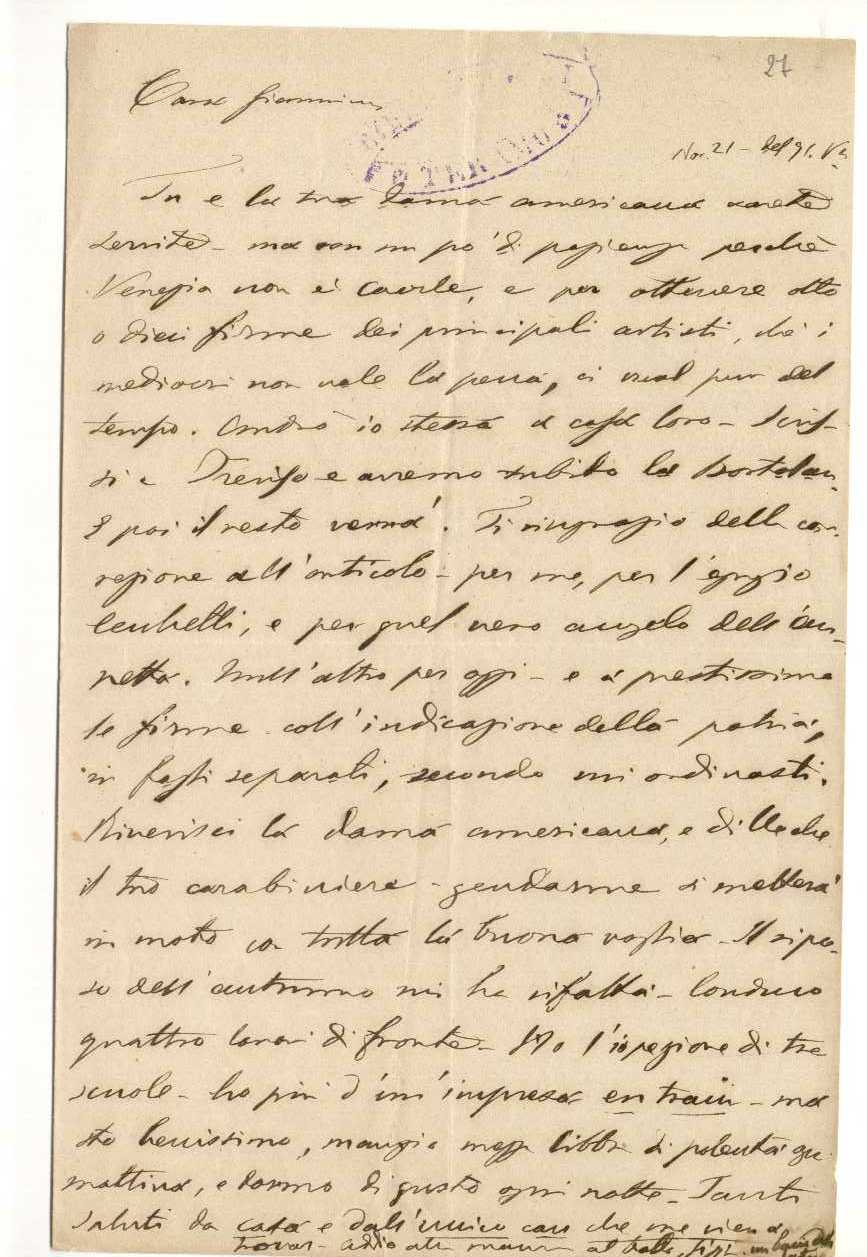 27
Cara Giannina
Nov. 21 - del 91.
Tu e la tua dama americana sarete
servite - ma con un po' di pazienza perchè
Venezia non è Caorle, e per ottenere otto
o dieci firme dei principali artisti, chè i
mediocri non vale la pena, ci vuol pur del
tempo. Andrò io stessa a casa loro - Scris-
si a Treviso e avremo subito la Bortolan.
E poi il resto verrà. Ti ringrazio della cor-
rezione all'articolo - per me, per l'egregio
e per quel vero angelo dell'An-
netta. Null'altro per oggi - e a prestissimo
le firme coll'indicazione della patria,
in fogli separati, secondo mi ordinasti.
Riverisci la dama americana, e dille che
il tuo carabiniere - gendarme si metterà
in moto con tutta la buona voglia - Il ripo-
so dell'autunno mi ha rifatta - Conduco
quattro lavori di fronte - Ho l'ispezione di tre
scuole - ho più d'un'impresa en train - ma
sto benissimo, mangio mezza libbra di polenta ogni
mattina, e dormo di gusto ogni notte - Tanti
saluti da casa e dall'unico can che me vien a
trovar - adio